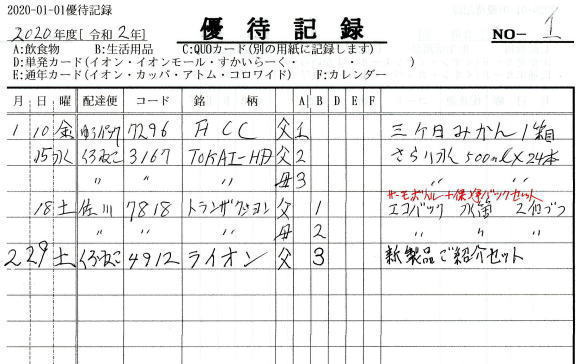 2020-01-01優待記録
2020年度[令和2年] 優待記録 NO- 1
A:飲食物 B:生活用品 C:QUOカード(別の用紙に記録します)
D:単発カード(イオン・イオンモール・すかいらーく・ ・ ・ )
E:通年カード(イオン・カッパ・アトム・コロワイド) F:カレンダー
月 日 曜 配達便 コード 銘柄 A B D E F
1 10 金 ゆうパック 7296 FCC 父 1 三ヶ日みかん 1箱
15 水 くろねこ 3167 TOKAI-HD 父 2 さらり水 500ml×24本
〃 〃 母 3 〃 〃
サーモボトル+保冷バックセット
18 土 佐川 7818 トランザクション 父 1 エコバック 水筒 2個づつ
〃 〃 〃 母 2 〃 〃 〃
2 29 土 くろねこ 4912 ライオン 父 3 新製品ご紹介セット